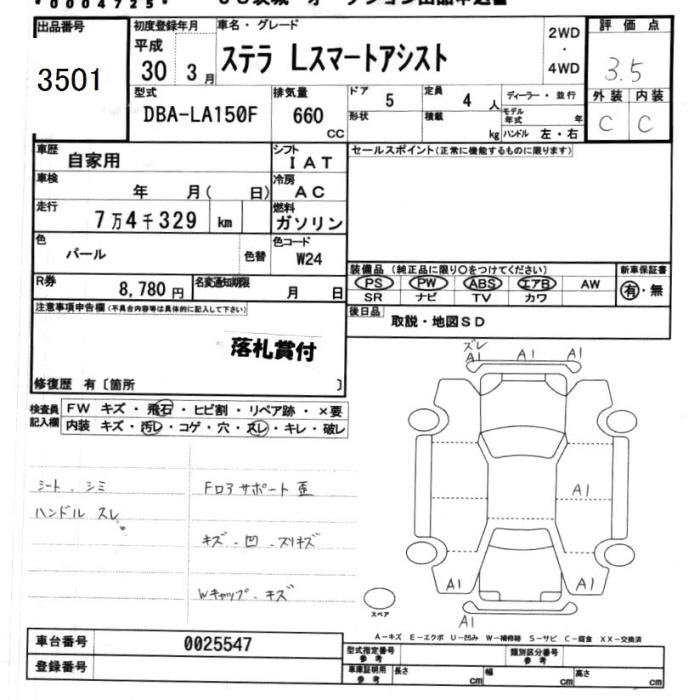 *0004725*
出品番号
3501
初度登録年月
平成
30 3 月
車名・グレード
ステラ Lスマートアシスト
2WD
・
4WD
評価点
3.5
外装 内装
C C
型式
DBA-LA150F
排気量
660
CC
ドア
5
定員
4 人
形状
積載
kg
ディーラー・並行
モデル
年式 年
ハンドル 左・右
車歴
自家用
シフト
IAT
車検
年 月( 日)
冷房
AC
走行
7万4千329 km
燃料
ガソリン
色
パール
色替
色コード
W24
R券
8,780円
名変通知期限
月 日
セールスポイント(正常に機能するものに限ります)
装備品(純正品に限り○をつけてください)
PS PW ABS エアB AW
SR ナビ TV カワ
新車保証書
有・無
後日品
取説・地図SD
注意事項申告欄(不具合内容等は具体的に記入して下さい)
落札賞付
修復歴 有〔箇所 〕
検査員
記入欄
FW キズ・飛石・ヒビ割・リペア跡・×要
内装 キズ・汚レ・コゲ・穴・スレ・キレ・破レ
シート.シミ
ハンドル スレ
Fロアサポート歪
キズ.凹.スリキズ
Wキャップ.キズ
ズレ
A1 A1 A1
A1
A1 A1
A1
スペア
A-キズ E-エクボ U-凹み W-補修跡 S-サビ C-腐食 XX-交換済
車台番号
0025547
登録番号
型式指定番号
参考
類別区分番号
参考
車庫証明用
参考
長さ cm
幅 cm
高さ cm